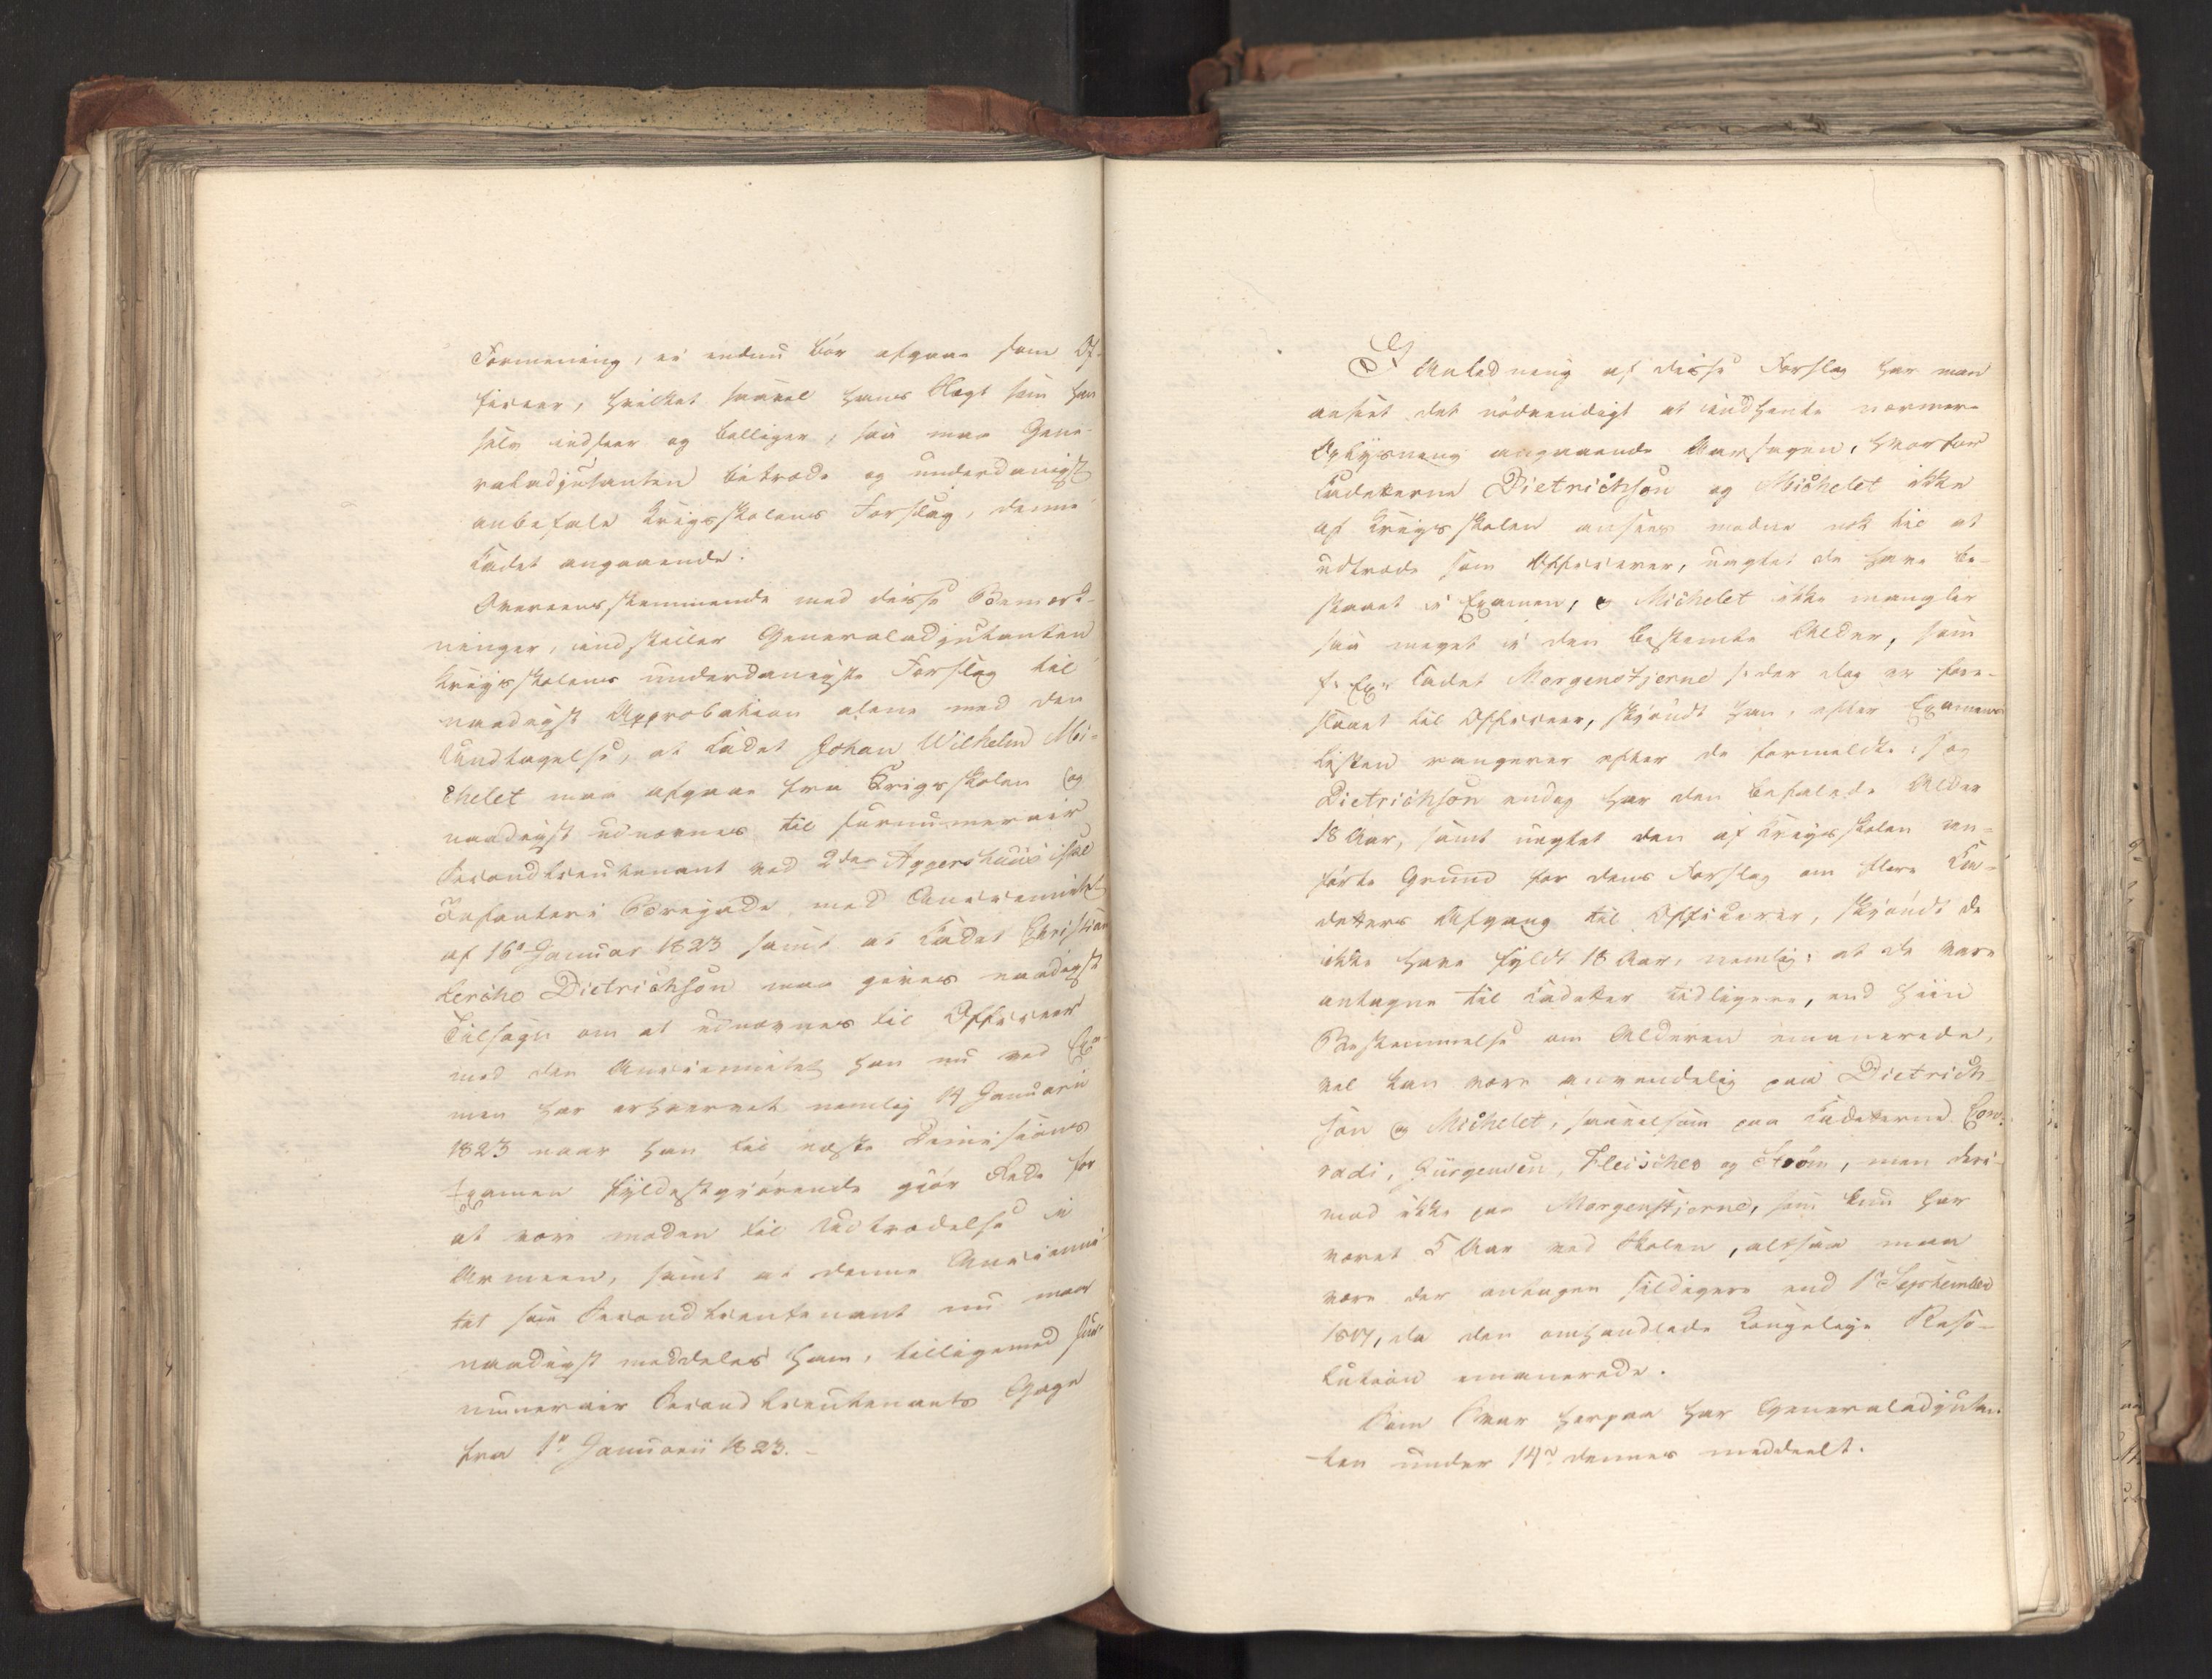 Formening, ei endnu bör afgaae som Of-
ficeer, hvilket saavel hans Slægt som han
selv indseer og billiger, saa maa Gene-
raladjutanten bitræde og underdanigst
anbefale Krigsskolens Forslag, denne
Cadet angaaende.
Overeensstemmende med disse Bemærk-
ninger, indstiller Generaladjutanten
Krigsskolens underdanigste Forslag til
naadigst Approbation alene med den
Undtagelse, at Cadet Johan Wilhelm Mi-
chelet maa afgaae fra Krigsskolen og
naadigst udnævnes til surnummerair
Secondlieutenant ved 2den Aggershuusiske
Infanteri Brigade, med Anciennitet
af 16de Januar 1823 samt at Cadet Christian
Lerche Dietrichson maa gives naadigst
Tilsagn om at udnævnes til Officeer
med den Anciennitet han nu ved Exa-
men har erhvervet nemlig 14 Januarii
1823 naar han til næste Dimissions
Examen fyldestgjörende gjör Rede for
at være moden til Udtrædelse i
Armeen, samt at denne Ancienni-
tet som Secondlieutenant nu maa
naadigst meddeles ham, tilligemed sur-
numerair Secondlieutenants Gage
fra 1ste Januarii 1823.
I Anledning af disse Forslag har man
anseet det nödvendigt at indhente nærmere
Oplysning angaaende Aarsagen, hvorfor
Cadetterne Dietrichson og Michelet ikke
af Krigsskolen ansees modne nok til at
udtræde som Officerer, uagtet de have be-
staaet i Examen, og Michelet ikke mangler
saa meget i den bestemte Alder, som
f. Ex. Cadet Morgenstjerne /: der dog er fore-
slaaet til Officeer, skjöndt han, efter Examens
Listen rangerer efter de formeldte :/ og
Dietrichson endog har den befalede Alder
18 Aar, samt uagtet den af Krigsskolen an-
förte Grund for dens Forslag om flere Ca-
detters Afgang til Officerer, skjöndt de
ikke have fyldt 18 Aar, nemlig: at de vare
antagne til Cadetter tidligere, end hiin
Bestemmelse om Alderen emanerede,
vel kan være anvendelig paa Dietrich-
son og Michelet, saavelsom paa Cadetterne Con-
radi, Jürgensen, Fleischer og Ström, men deri-
mod ikke paa Morgenstjerne, som kun har
været 5 Aar ved Skolen, altsaa maa
være der antagen sildigere end 1ste September
1817, da den omhandlede Kongelige Reso-
lution emanerede.
Som Svar herpaa har Generaladjutan-
ten under 14de dennes meddeelt.